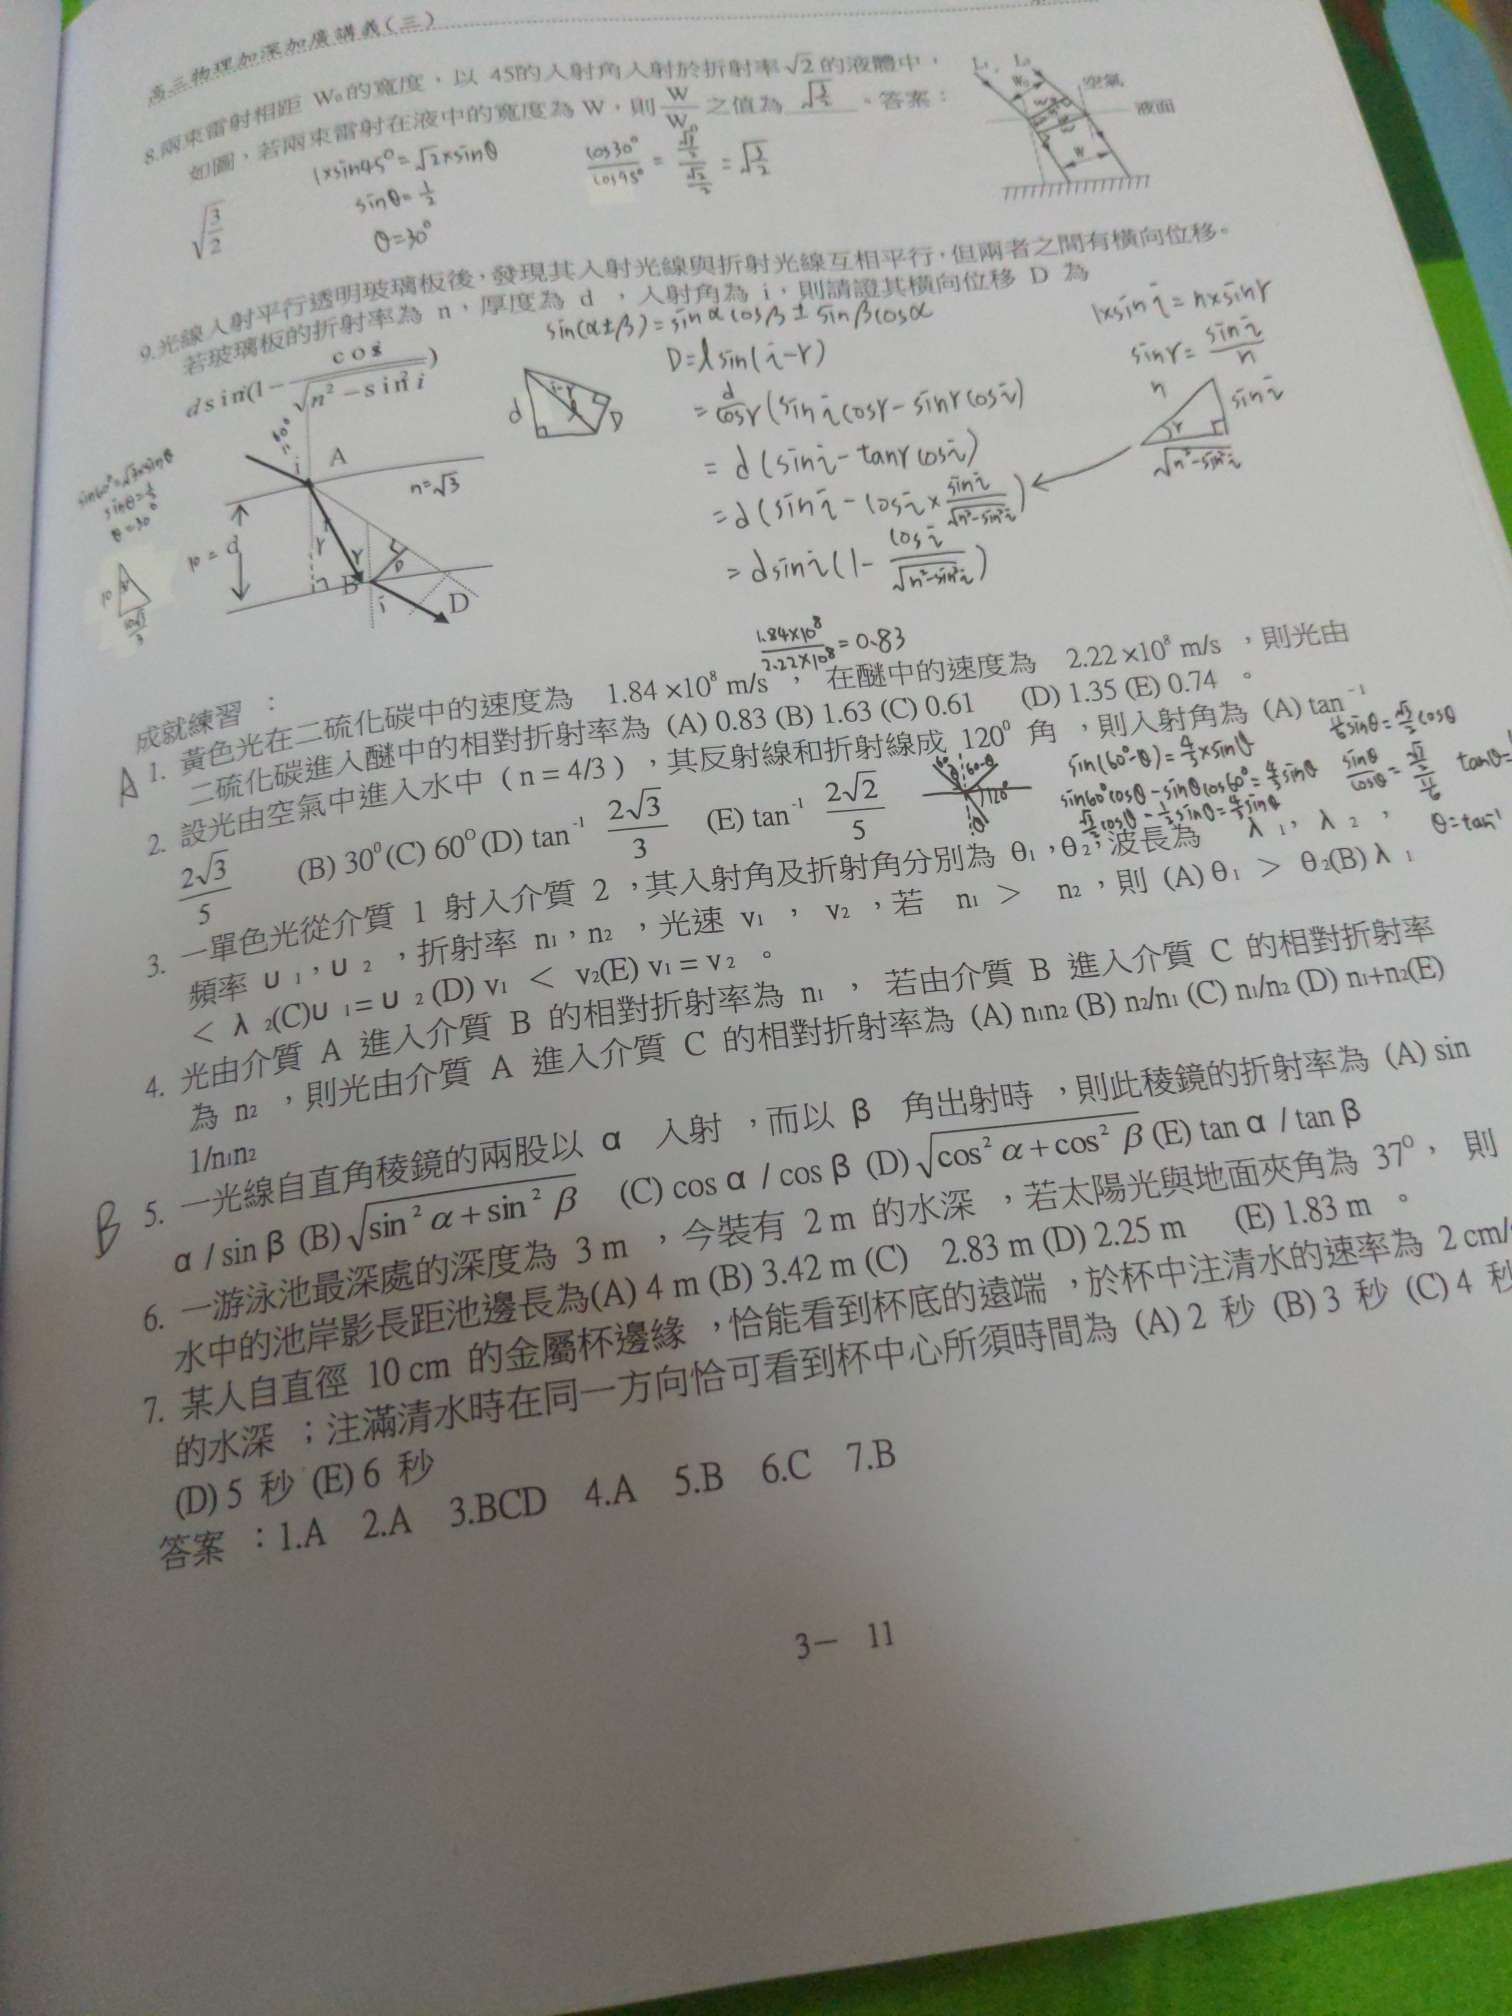 高三物理加深加廣講義(三)
8.兩束雷射相距 W₀的寬度，以 45的入射角入射於折射率√2的液體中，
如圖，若兩束雷射在液中的寬度為 W，則 W/W 之值為 √(3/2) 。答案：
√(3/2)
1×sin45°=√2×sinθ
sinθ=1/2
θ=30°
cos30°/cos45° = (√3/2)/(√2/2) = √(3/2)
L₁ L₂
W₀
空氣
液面
W
9.光線入射平行透明玻璃板後，發現其入射光線與折射光線互相平行，但兩者之間有橫向位移。
若玻璃板的折射率為 n，厚度為 d ，入射角為 i，則請證其橫向位移 D 為
d sin(1− cos i/√(n²−sin² i))
sin(α±β)=sinαcosβ±sinβcosα
D=lsin(i-r)
= d/cosr (sinicosr-sinrcosi)
= d(sini-tanrcosi)
= d(sini-cosi× sini/√(n²-sin²i))
= dsini(1- cosi/√(n²-sin²i))
1×sini=n×sinr
sinr= sini/n
n
sini
r
√(n²-sin²i)
d
i-r
l
D
sin60°=√3×sinθ
sinθ=1/2
θ=30°
10
10√3/3
60°
i
A
n=√3
10 = d
r
r
B
D
i
D
1.84×10⁸/2.22×10⁸=0.83
成就練習 ：
A 1. 黃色光在二硫化碳中的速度為 1.84 ×10⁸ m/s ， 在醚中的速度為 2.22 ×10⁸ m/s ，則光由
二硫化碳進入醚中的相對折射率為 (A) 0.83 (B) 1.63 (C) 0.61 (D) 1.35 (E) 0.74 。
2. 設光由空氣中進入水中 ( n = 4/3 ) ，其反射線和折射線成 120⁰ 角 ，則入射角為 (A) tan⁻¹
2√3/5 (B) 30⁰(C) 60⁰(D) tan⁻¹ 2√3/3 (E) tan⁻¹ 2√2/5
60-θ
120°
θ
sin(60°-θ)=4/3×sinθ
sin60°cosθ-sinθcos60°=4/3sinθ
√3/2cosθ-1/2sinθ=4/3sinθ
tanθ=
θ=tan⁻¹
3. 一單色光從介質 1 射入介質 2 ，其入射角及折射角分別為 θ₁，θ₂，波長為 λ₁，λ₂，
頻率 υ₁，υ₂ ，折射率 n₁，n₂ ，光速 v₁ ， v₂ ，若 n₁ > n₂ ，則 (A) θ₁ > θ₂(B) λ₁
< λ₂(C)υ₁=υ₂ (D) v₁ < v₂(E) v₁ = v₂ 。
4. 光由介質 A 進入介質 B 的相對折射率為 n₁ ， 若由介質 B 進入介質 C 的相對折射率
為 n₂ ，則光由介質 A 進入介質 C 的相對折射率為 (A) n₁n₂ (B) n₂/n₁ (C) n₁/n₂ (D) n₁+n₂(E)
1/n₁n₂
B 5. 一光線自直角稜鏡的兩股以 α 入射 ，而以 β 角出射時 ，則此稜鏡的折射率為 (A) sin
α / sin β (B) √(sin² α + sin² β) (C) cos α / cos β (D) √(cos² α + cos² β) (E) tan α / tan β
6. 一游泳池最深處的深度為 3 m ，今裝有 2 m 的水深 ，若太陽光與地面夾角為 37⁰， 則
水中的池岸影長距池邊長為(A) 4 m (B) 3.42 m (C) 2.83 m (D) 2.25 m (E) 1.83 m 。
7. 某人自直徑 10 cm 的金屬杯邊緣 ，恰能看到杯底的遠端 ，於杯中注清水的速率為 2 cm/s
的水深 ；注滿清水時在同一方向恰可看到杯中心所須時間為 (A) 2 秒 (B) 3 秒 (C) 4 秒
(D) 5 秒 (E) 6 秒
答案 ：1.A 2.A 3.BCD 4.A 5.B 6.C 7.B
3－ 11